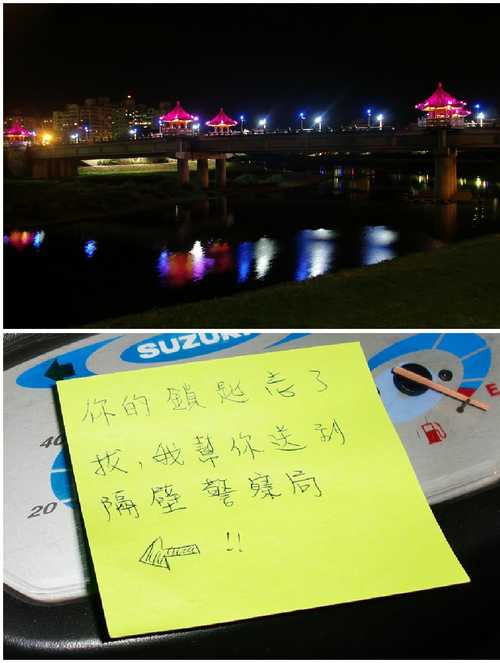 SUZUKI
你的鎖匙忘了
拔,我幫你送到
隔壁警察局
!!
40
20
E